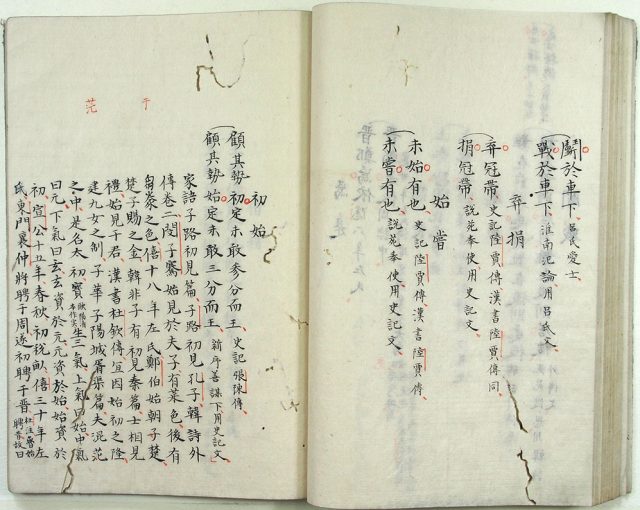 鬭於車下、呂氏愛士、
戰於車下、淮南氾論用呂氏文、
弃捐
弃冠帶、史記陸賈傳漢書陸賈傳同、
捐冠帶、說苑奉使用史記文、
始嘗
未始有也、史記陸賈傳漢書陸賈傳
未嘗有也、說苑奉使用史記文、
初始
顧其勢初定未敢參分而王、史記張陳傳
顧其勢始定未敢三分而王、新序善謀下用史記文
家語子路初見篇、子路初見孔子、韓詩外
傳卷二閔子騫始見於夫子、有菜色、後有
芻豢之色、僖十八年左氏鄭伯始朝于楚、
楚子賜之金、韓非子有初見秦篇、士相見
禮始見于君、漢書杜欽傳宜因始初之隆
建九女之制、子華子陽城胥渠篇、夫混茫
之中是名太初、實生三氣、上氣曰始、中氣
曰元、下氣曰玄、玄資於元、元資於始、始資於
初、宣公十五年春秋、初稅畝、僖三十年左
氏、東門襄仲將聘于周、遂初聘于晉、
于
茫